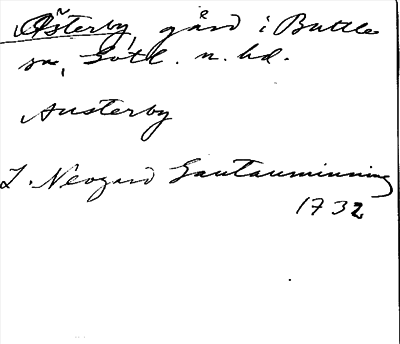 Österby, gård i Buttle
sn, Gotl. n. hd.
Austerby
L. Neogard Gautauminning
1732